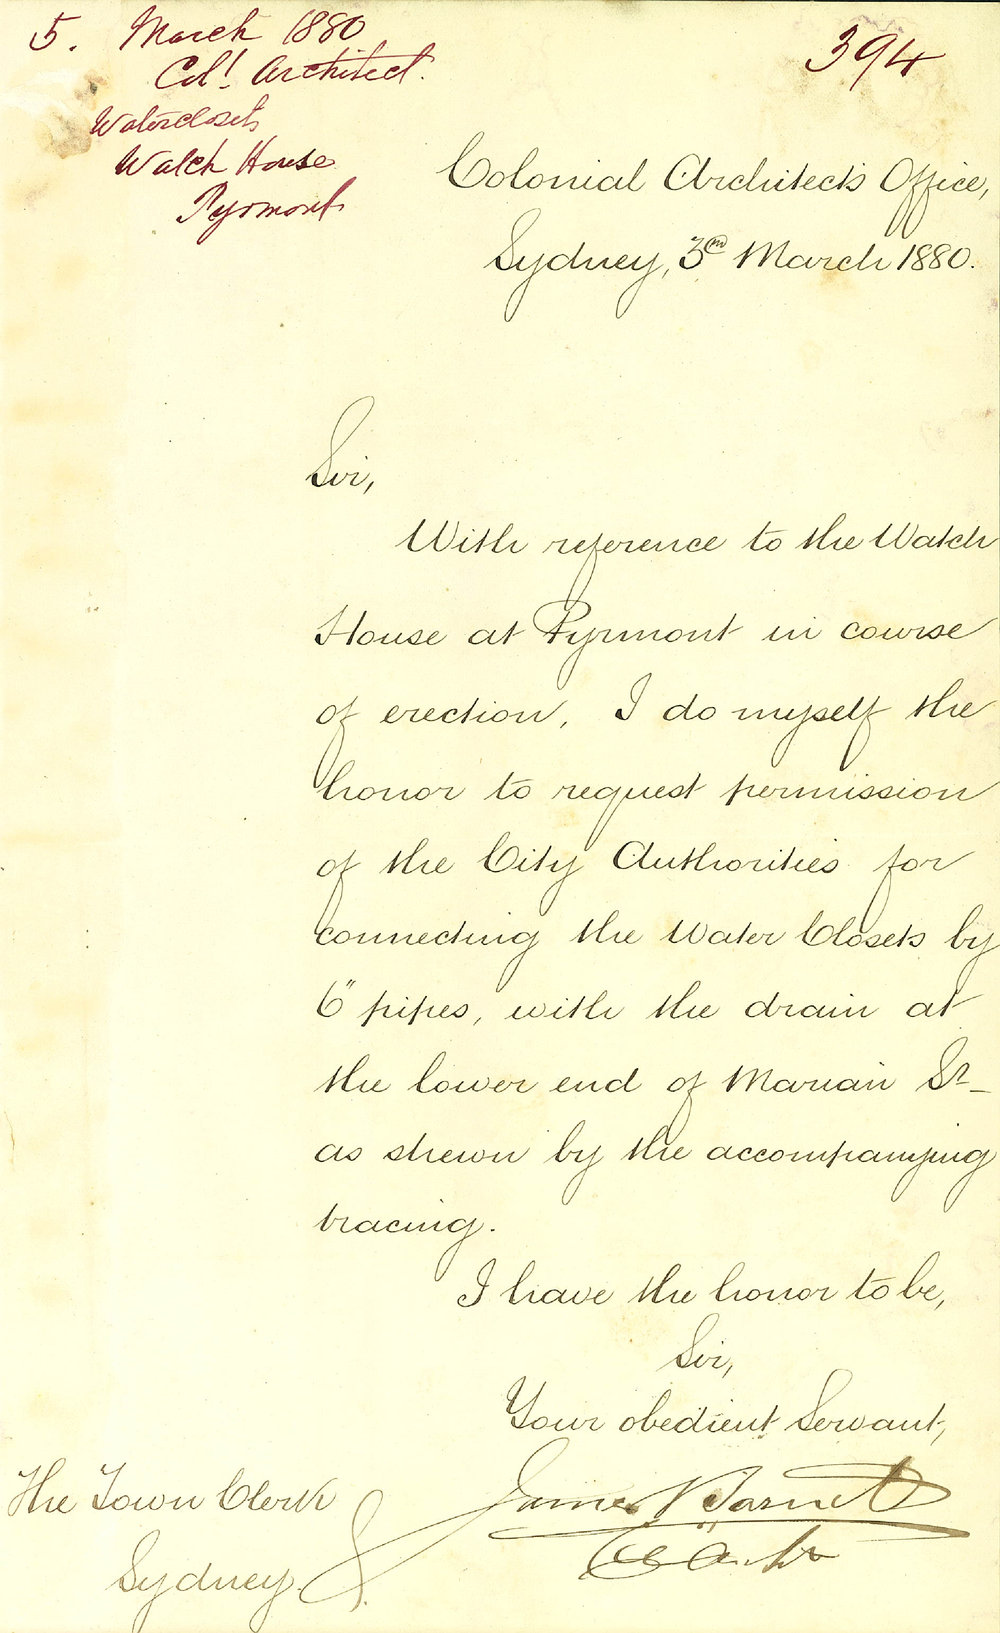 5. March 1880
Col! Architect.
Waterclosets
Watch House
Pyrmont
394
Colonial Architects Office,
Sydney, 3rd March 1880.
Sir,
With reference to the Watch
House at Pyrmont in course
of erection, I do myself the
honor to request permission
of the City Authorities for
connecting the Water Closets by
6" pipes, with the drain at
the lower end of Marian St
as shewn by the accompanying
tracing.
I have the honor to be,
Sir,
Your obedient Servant,
James Barnet
The Town Clerk
Sydney.